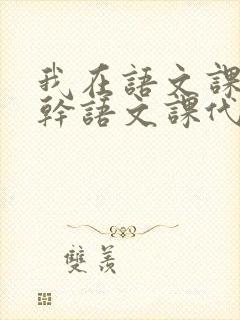 我在語文課
幹語文課代
雙羨